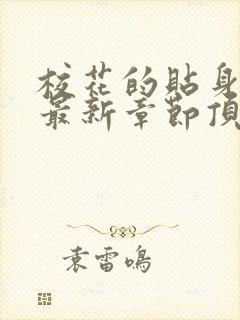 校花的貼身
最新章節頂
袁雷鳴